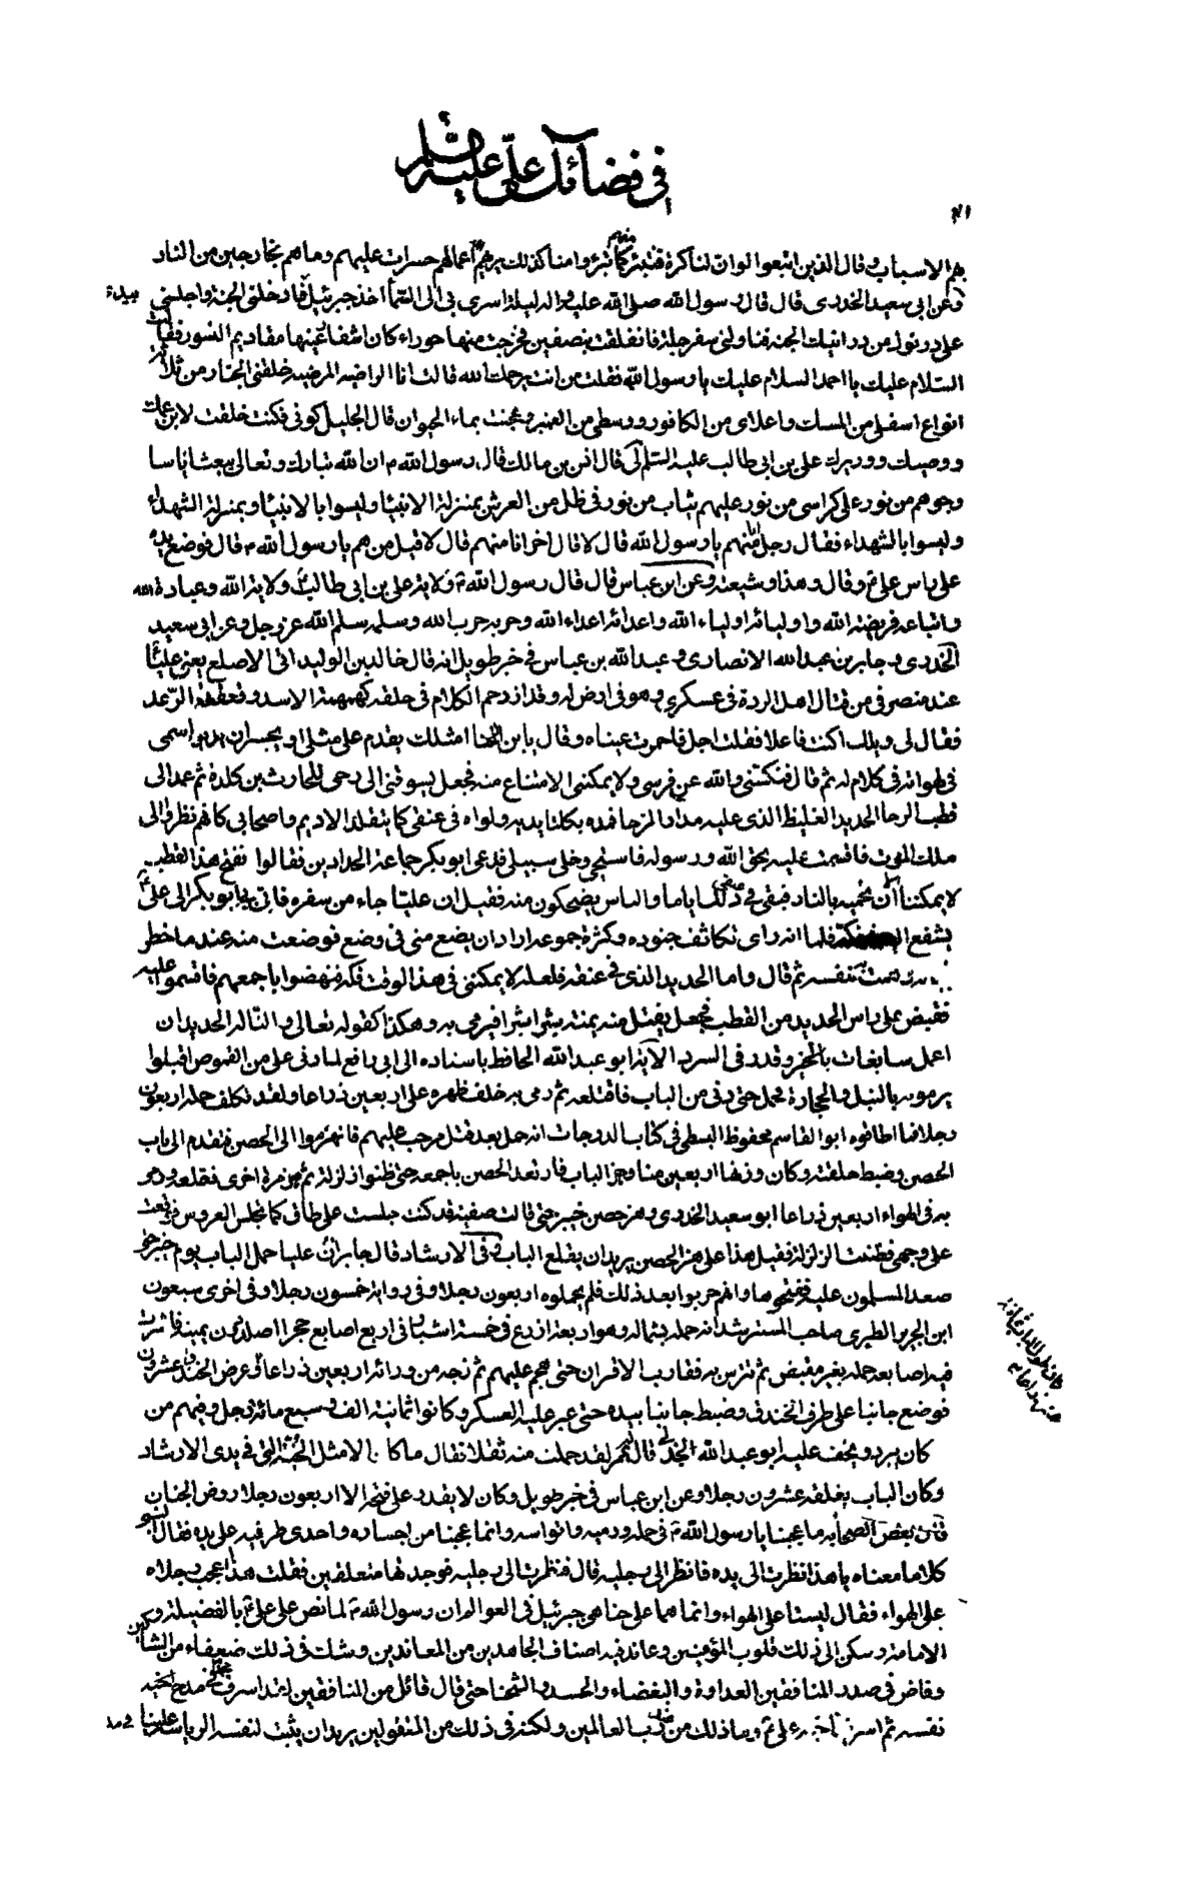 في فضائل علي عليه السلام
بهم الاسباب وقال الذين اتبعوا لو ان لنا كرة فنتبرء منهم كما تبرؤا منا كذلك يريهم الله اعمالهم حسرات عليهم وما هم بخارجين من النار
وعن ابي سعيد الخدري قال قال رسول الله صلى الله عليه واله ليلة اسري بي الى السماء اخذ جبرئيل بيدي فادخلني الجنة واجلسني
على درنوك من درانيك الجنة فناولني سفرجلة فانفلقت بنصفين فخرجت منها حوراء كان اشفار عينها مقاديم النسور فقالت
السلام عليك يا احمد السلام عليك يا رسول الله فقلت من انت يرحمك الله قالت انا الراضية المرضية خلقني الجبار من ثلاثة
انواع اسفلي من المسك واعلاي من الكافور ووسطي من العنبر وعجنت بماء الحيوان قال الجليل كوني فكنت خلقت لابن عمك
ووصيك ووزيرك علي بن ابي طالب عليه السلم قال انس بن مالك قال رسول الله ص ان الله تبارك وتعالى يبعث اناسا
وجوههم من نور على كراسي من نور عليهم ثياب من نور في ظل من العرش بمنزلة الانبياء وليسوا بالانبياء وبمنزلة الشهداء
وليسوا بالشهداء فقال رجل انا منهم يا رسول الله قال لا قال اخر انا منهم قال لا قيل من هم يا رسول الله ص قال فوضع يده
على راس علي ع وقال هذا وشيعته وعن ابن عباس قال قال رسول الله ص ولاية علي بن ابي طالب ولاية الله وعبادة الله
واتباعه فريضة الله واوليائه اولياء الله واعدائه اعداء الله وحربه حرب الله وسلمه سلم الله عز وجل وعن ابي سعيد
الخدري وجابر بن عبد الله الانصاري وعبد الله بن عباس في خبر طويل انه قال خالد بن الوليد اتى الاصلع يعني عليا
عند منصرفي من قتال اهل الردة في عسكري وهو في ارض له وقد ازدحم الكلام في حلقه كهمهمة الاسد وقعقعة الرعد
فقال لي ويلك اكنت فاعلا فقلت اجل فاحمرت عيناه وقال يا ابن اللخنا امثلك يقدم على مثلي او يجسر ان يدير اسمي
في لهواته في كلام له ثم قال فنكسني والله عن فرسي ولا يمكنني الامتناع منه فجعل يسوقني الى رحى للحارث بن كلدة ثم عمد الى
قطب الرحا الحديد الغليظ الذي عليه مدار الرحا فمده بكلتا يديه ولواه في عنقي كما يتفتل الاديم واصحابي كانهم نظروا الى
ملك الموت فاقسمت عليه بحق الله ورسوله فاستحى وخلى سبيلي فدعى ابو بكر جماعة الحدادين فقالوا ان فتح هذا القطب
لا يمكننا الا ان نحميه بالنار فبقي في ذلك اياما والناس يضحكون منه فقيل ان عليا جاء من سفره فاتى به ابو بكر الى علي
يشفع اليه في فكه فلما انه راى تكاثف جنوده وكثرة جموعه اراد ان يضع مني في وضع فوضعت منه عند ما خطر
نفسه ثم قال واما الحديد الذي في عنقه فلعله لا يمكنني في هذا الوقت فكه فنهضوا باجمعهم فاقسموا عليه
فقبض على راس الحديد من القطب فجعل يفتل منه بيمنه شبرا شبرا فيرمي به وهكذا كقوله تعالى والنا له الحديد ان
اعمل سابغات وقدر في السرد الاية ابو عبد الله الحافظ باسناده الى ابي رافع لما دنى علي من القموص اقبلوا
يرمونه بالنبل والحجارة فحمل حتى دنى من الباب فاقتلعه ثم رمى به خلف ظهره اربعين ذراعا ولقد تكلف حمله اربعون
رجلا فما اطاقوه ابو القاسم محفوظ البستي في كتاب الدرجات انه حمل بعد قتل مرحب عليهم فانهزموا الى الحصن فتقدم الى باب
الحصن وضبط حلقته وكان وزنها اربعين منا وهز الباب فارتعد الحصن باجمعه حتى ظنوا زلزلة ثم هزه مرة اخرى فقلعه ودحى
به في الهواء اربعين ذراعا ابو سعيد الخدري وهز حصن خيبر حتى قالت صفية قد كنت جلست على طاق كما تجلس العروس فوقعت
على وجهي فظننت الزلزلة فقيل هذا علي هز الحصن يريدان يقلع الباب وفي الارشاد قال جابر ان عليا حمل الباب يوم خيبر حتى
صعد المسلمون عليه ففتحوها وانهم جربوا بعد ذلك فلم يحملوه اربعون رجلا وفي رواية خمسون رجلا وفي اخرى سبعون
ابن الجرير الطبري صاحب المسترشد انه حمله بشماله وهو اربعة اذرع في خمسة اشبار في اربع اصابع حجرا اصلد دون يمينه فاثرت
فيه اصابعه حمله بغير مقبض ثم تترس به فقارب الاقران حتى هجم عليهم ثم زجه من ورائه اربعين ذراعا وفي عرض الخندق عشرون
فوضع جانبا على طرف الخندق وضبط جانبا بيده حتى عبر عليه العسكر وكانوا ثمانية الف وسبع مائة رجل وفيهم من
كان يرد ويخف عليه ابو عبد الله الجذلي قال له عمر لقد حملت منه ثقلا فقال ما كان الا مثل الجنة التي في يدي الارشاد
وكان الباب يغلقه عشرون رجلا وعن ابن عباس في خبر طويل وكان لا يقدر على فتحه الا اربعون رجلا روض الجنان
قال بعض الصحابة ما عجبنا يا رسول الله ص في حمله ورميه واتراسه وانما عجبنا من اجساره واحدى طرفيه على يده فقال النبي
كلاما معناه يا هذا نظرت الى يده فانظر الى رجليه قال فنظرت الى رجليه فوجدتهما متعلقين فقلت هذا اعجب رجلاه
على الهواء فقال ليستا على الهواء وانما هما على جناحي جبرئيل في العوالي ان رسول الله ص لما نص على علي ع بالفضيلة و
الامامة وسكن الى ذلك قلوب المؤمنين وعاند فيه اصناف الجاحدين من المعاندين وشك في ذلك ضعفاء من الشاكين
وفاض في صدور المنافقين العداوة والبغضاء والحسد والشحنا حتى قال قائل من المنافقين لقد اسرف محمد في مدح
نفسه ثم اسرف علي ع وما ذلك من عند رب العالمين ولكنه في ذلك من المتقولين يريد ان يثبت لنفسه الرياسة علينا